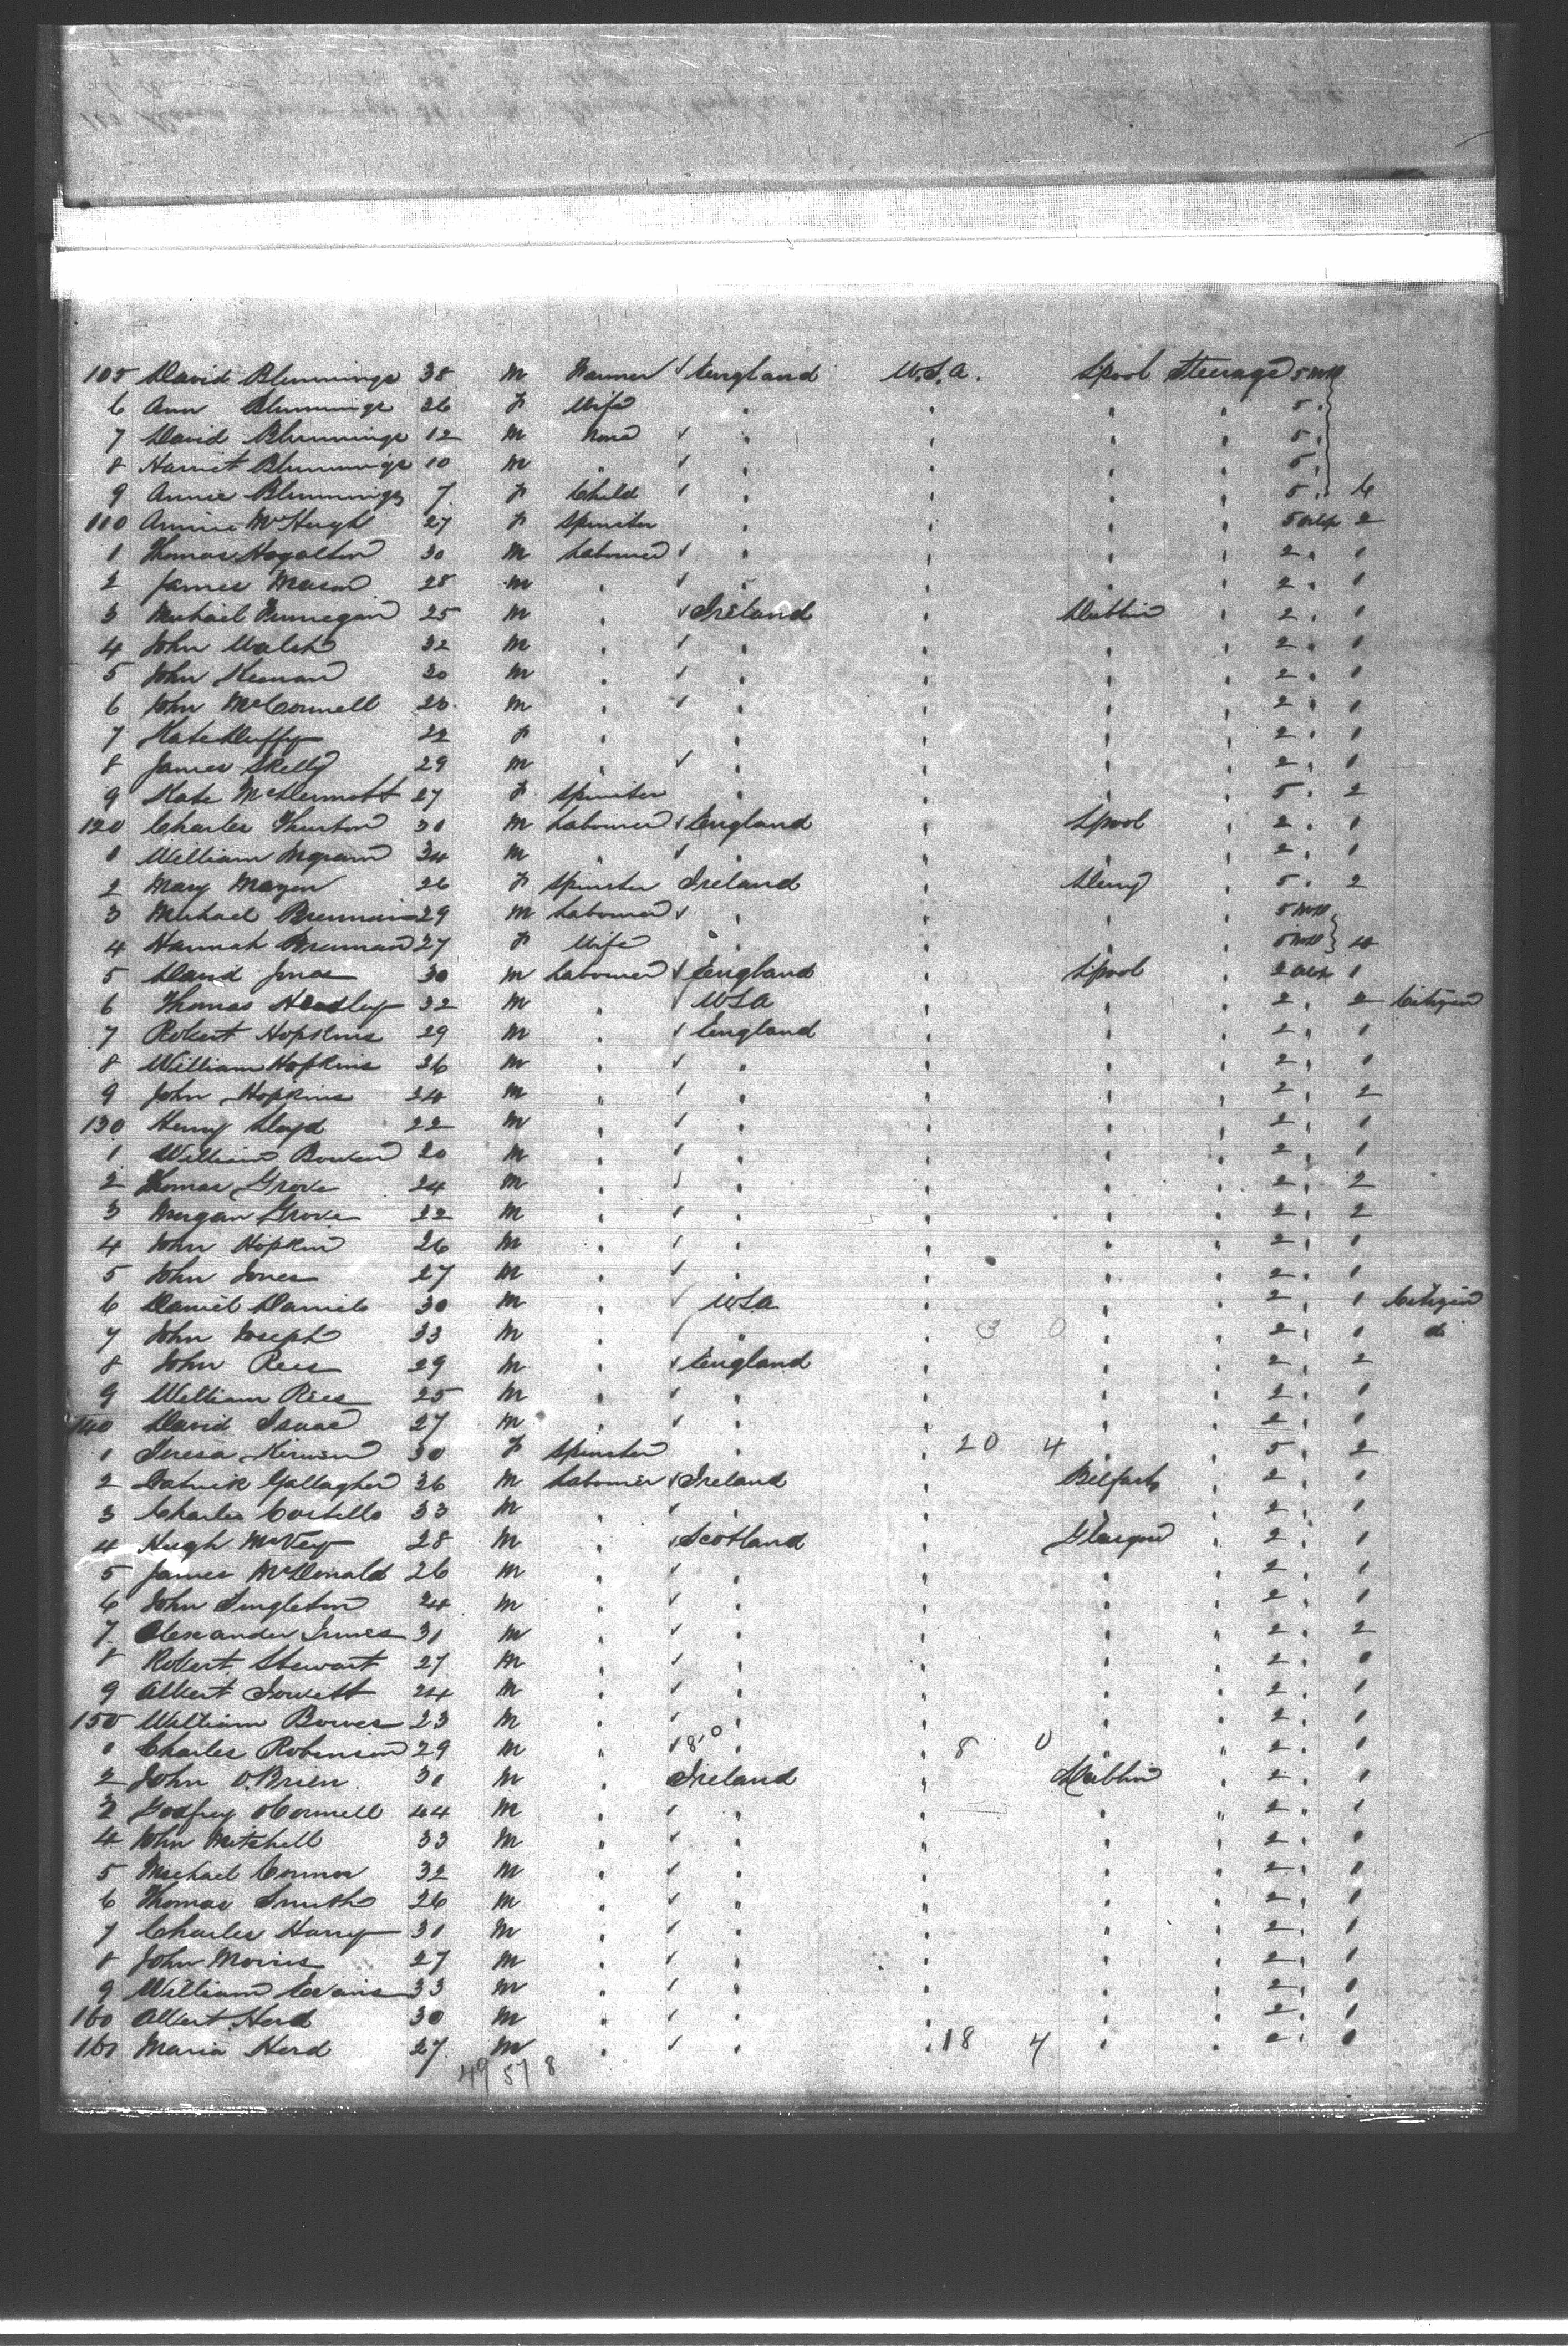 105 David Blummings 38 m Farmer ✓ England U.S.A. Lpool Steerage 5 Mdl
6 Ann Blummings 36 f Wife " " " " 5 "
7 David Blummings 12 m None ✓ " " " " 5 "
8 Harriet Blummings 10 m " ✓ " " " " 5 "
9 Annie Blummings 7 f Child ✓ " " " " 5 " 6
110 Annie McHugh 27 f Spinster " " " " 5 2
1 Thomas 30 m Labourer ✓ " " " " 2 " 1
2 James Mason 28 m " ✓ " " " " 2 " 1
3 Michael Finnegan 25 m " ✓ Ireland " Dublin " 2 " 1
4 John Walsh 32 m " ✓ " " " " 2 " 1
5 John Keenan 30 m " ✓ " " " " 2 " 1
6 John McConnell 28 m " ✓ " " " " 2 " 1
7 Kate Duffy 22 f " " " " " 2 " 1
8 James Skelly 29 m " ✓ " " " " 2 " 1
9 Kate McDermott 27 f Spinster " " " " 5 " 2
120 Charles Thurton 30 m Labourer ✓ England " Lpool " 2 " 1
1 William Ingram 34 m " ✓ " " " " 2 " 1
2 Mary Magen 26 f Spinster Ireland " Derry " 5 " 2
3 Michael Brennan 29 m Labourer ✓ " " " " 5 Mdl
4 Hannah Brennan 27 f Wife " " " " 5 Mdl 4
5 David Jones 30 m Labourer ✓ England " Lpool " 2 1
6 Thomas Headley 32 m " ✓ USA " " " 2 " 2 Citizen
7 Robert Hopkins 29 m " ✓ England " " " 2 " 1
8 William Hopkins 26 m " ✓ " " " " 2 " 1
9 John Hopkins 24 m " ✓ " " " " 2 " 2
130 Henry Lloyd 22 m " ✓ " " " " 2 " 1
1 William Bowen 20 m " ✓ " " " " 2 " 1
2 Thomas Grove 24 m " ✓ " " " " 2 " 2
3 Morgan Grove 22 m " ✓ " " " " 2 " 2
4 John Hopkin 26 m " ✓ " " " " 2 " 1
5 John Jones 27 m " ✓ " " " " 2 " 1
6 Daniel Daniels 30 m " ✓ USA " " " 2 " 1 Citizen
7 John Joseph 33 m " ✓ " " 3 0 " " 2 " 1 do
8 John Rees 29 m " ✓ England " " " 2 " 2
9 William Rees 25 m " ✓ " " " " 2 " 1
140 David Isaac 27 m " ✓ " " " " 2 " 1
1 Teresa Kirwan 30 f Spinster " 20 4 " " 5 " 2
2 Patrick Gallagher 26 m Labourer ✓ Ireland " Belfast " 2 " 1
3 Charles Costello 33 m " ✓ " " " " 2 " 1
4 Hugh McVey 28 m " ✓ Scotland " Glasgow " 2 " 1
5 James McDonald 26 m " ✓ " " " " 2 " 1
6 John Singleton 24 m " ✓ " " " " 2 " 1
7 Alexander Innes 31 m " ✓ " " " " 2 " 2
8 Robert Stewart 27 m " ✓ " " " " 2 " 1
9 Albert Jowett 24 m " ✓ " " " " 2 " 1
150 William Bowes 23 m " ✓ " " " " 2 " 1
1 Charles Robinson 29 m " ✓ 8,0 " 8 0 " " 2 " 1
2 John O'Brien 31 m " Ireland " Dublin " 2 " 1
3 Godfrey O'Connell 44 m " ✓ " " " " 2 " 1
4 John Mitchell 33 m " ✓ " " " " 2 " 1
5 Michael Connor 32 m " ✓ " " " " 2 " 1
6 Thomas Smith 26 m " ✓ " " " " 2 " 1
7 Charles Harry 31 m " ✓ " " " " 2 " 1
8 John Morris 27 m " ✓ " " " " 2 " 1
9 William Evans 33 m " ✓ " " " " 2 " 1
160 Albert Herd 30 m " ✓ " " " " 2 " 1
161 Maria Herd 27 m " ✓ " " 18 4 " " 2 " 1
49 57 8